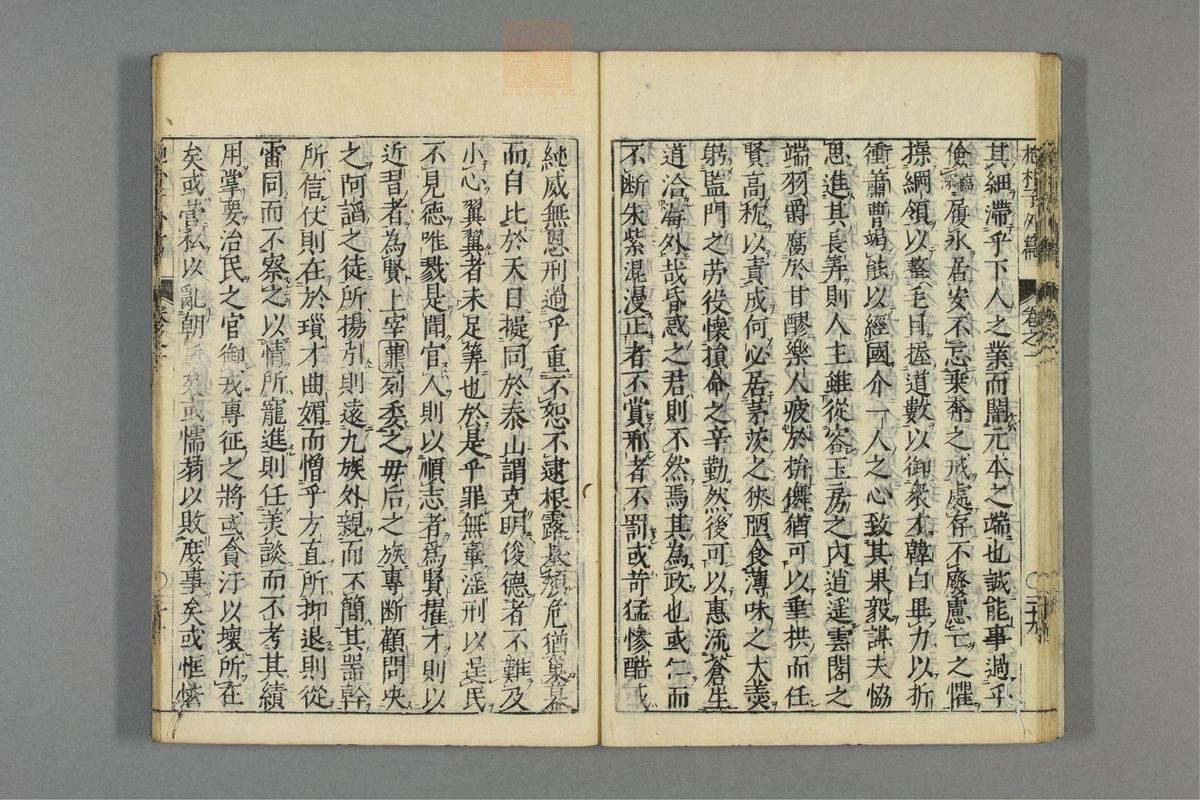 抱朴子外篇 卷之一 〇二十九
其細滯乎下人之業而闇元本之端也誠能事過乎
儉臨深履氷居安不忘乗奔之戒處存不廢慮亡之懼
操綱領以整毛目握道數以御衆才韓白畢力以折
衝蕭曹竭能以經國介一人之心致其果毅謀夫恊
思進其長筭則人主雖從容玉房之内逍遥雲閣之
端羽爵腐於甘醪樂人疲於拚儛猶可以垂拱而任
賢高枕以責成何必居茅茨之狹陋食薄味之大羹
躬監門之劳役懷損命之辛勤然後可以惠流蒼生
道洽海外哉昏惑之君則不然焉其為政也或仁而
不断朱紫混漫正者不賞邪者不罰或苛猛惨酷或
純威無恩刑過乎重不恕不逮根露基頽危猶巢幕
而自比於天日擬同於泰山謂克明俊德者不難及
小心翼翼者未足筭也於是乎罪無辜淫刑以逞民
不見德唯戮是聞官人則以順志者為賢擢才則以
近習者為賢上宰鼎列委之母后之族專断顧問决
之阿謟之徒所揚引則遠九族外親而不簡其器幹
所信仗則在於瑣才曲媚而憎乎方直所抑退則從
雷同而不察之以情所寵進則任美談而不考其績
用掌要治民之官御戎專征之將或貪汙以壞所在
矣或營私以亂朝廷矣或懦弱以敗庶事矣或恇怯